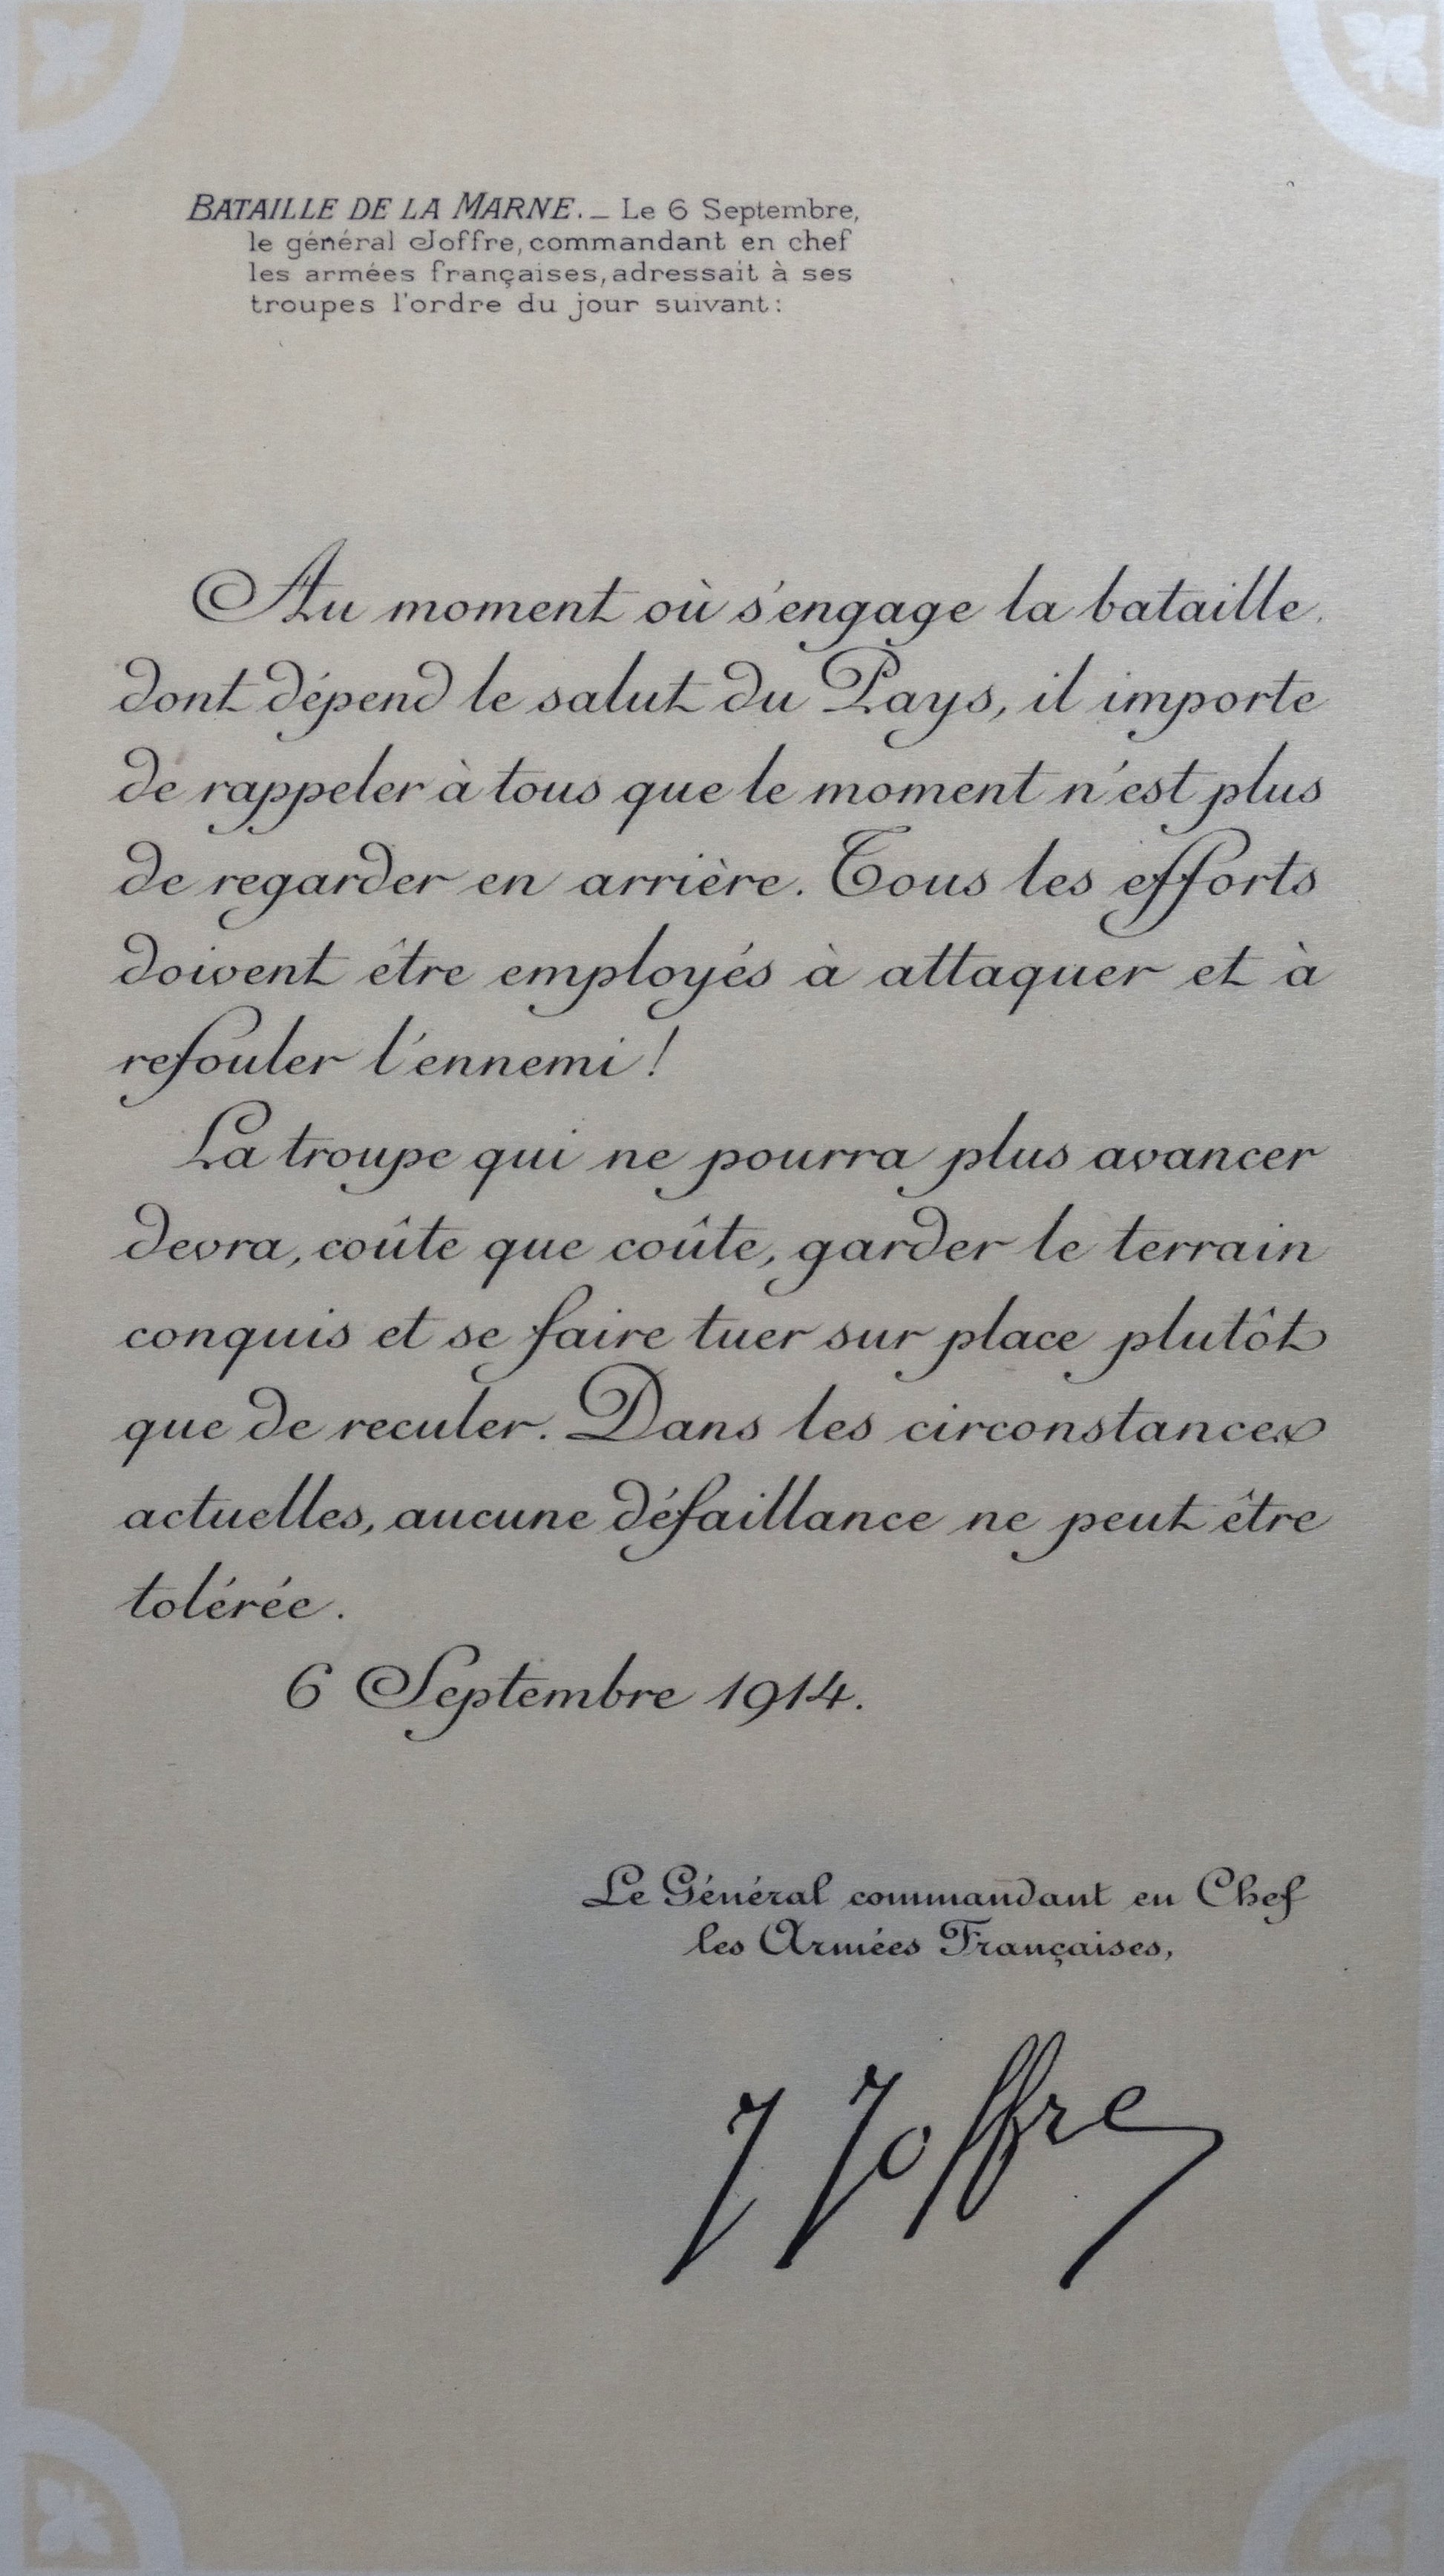 BATAILLE DE LA MARNE. _ Le 6 Septembre,
le général Joffre, commandant en chef
les armées françaises, adressait à ses
troupes l'ordre du jour suivant:
Au moment où s'engage la bataille,
dont dépend le salut du Pays, il importe
de rappeler à tous que le moment n'est plus
de regarder en arrière. Tous les efforts
doivent être employés à attaquer et à
refouler l'ennemi!
La troupe qui ne pourra plus avancer
devra, coûte que coûte, garder le terrain
conquis et se faire tuer sur place plutôt
que de reculer. Dans les circonstances
actuelles, aucune défaillance ne peut être
tolérée.
6 Septembre 1914.
Le Général commandant en Chef
les Armées Françaises,
J Joffre